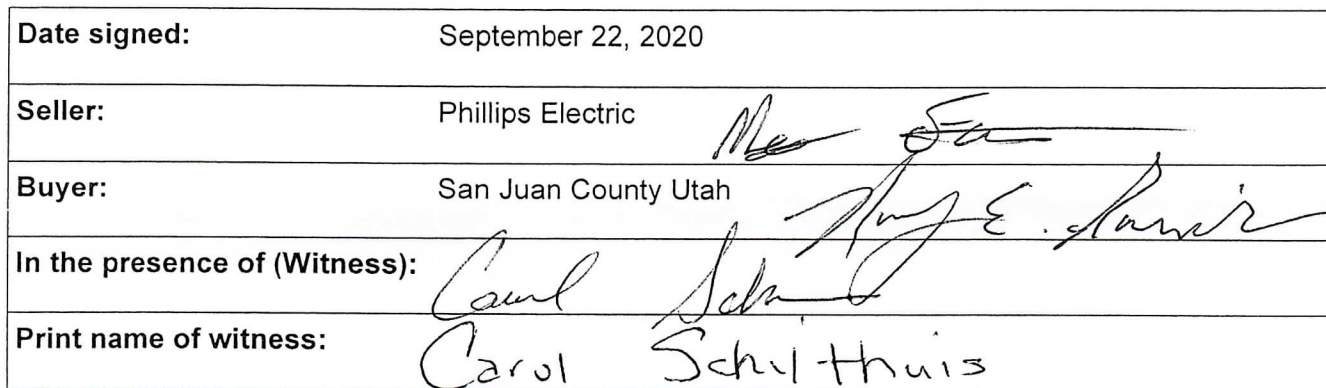 Date signed: September 22, 2020
Seller: Phillips Electric
Buyer: San Juan County Utah
In the presence of (Witness): Carol
Print name of witness: Carol Schilthuis